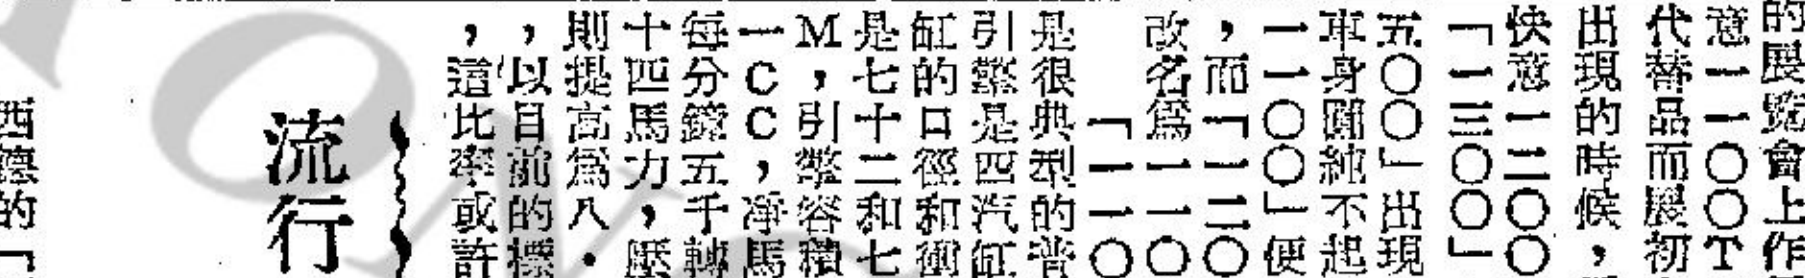 的展覽會上作
意一一〇〇T
代替品而展初
出現的時候，
快意一二〇〇
「一三〇〇」
五〇〇」出現
車身關純不起
一一〇〇」便
，而「一二〇
改名為一一〇
「一一〇
是很典型的普
引擎是四汽缸
缸的口徑和衝
是七十二和七
M，引擎容積
一CC，淨馬
每分鐘五千轉
十匹馬力，壓
則提高為八·
，以目前的標
，這比率或許
流行
西德的「